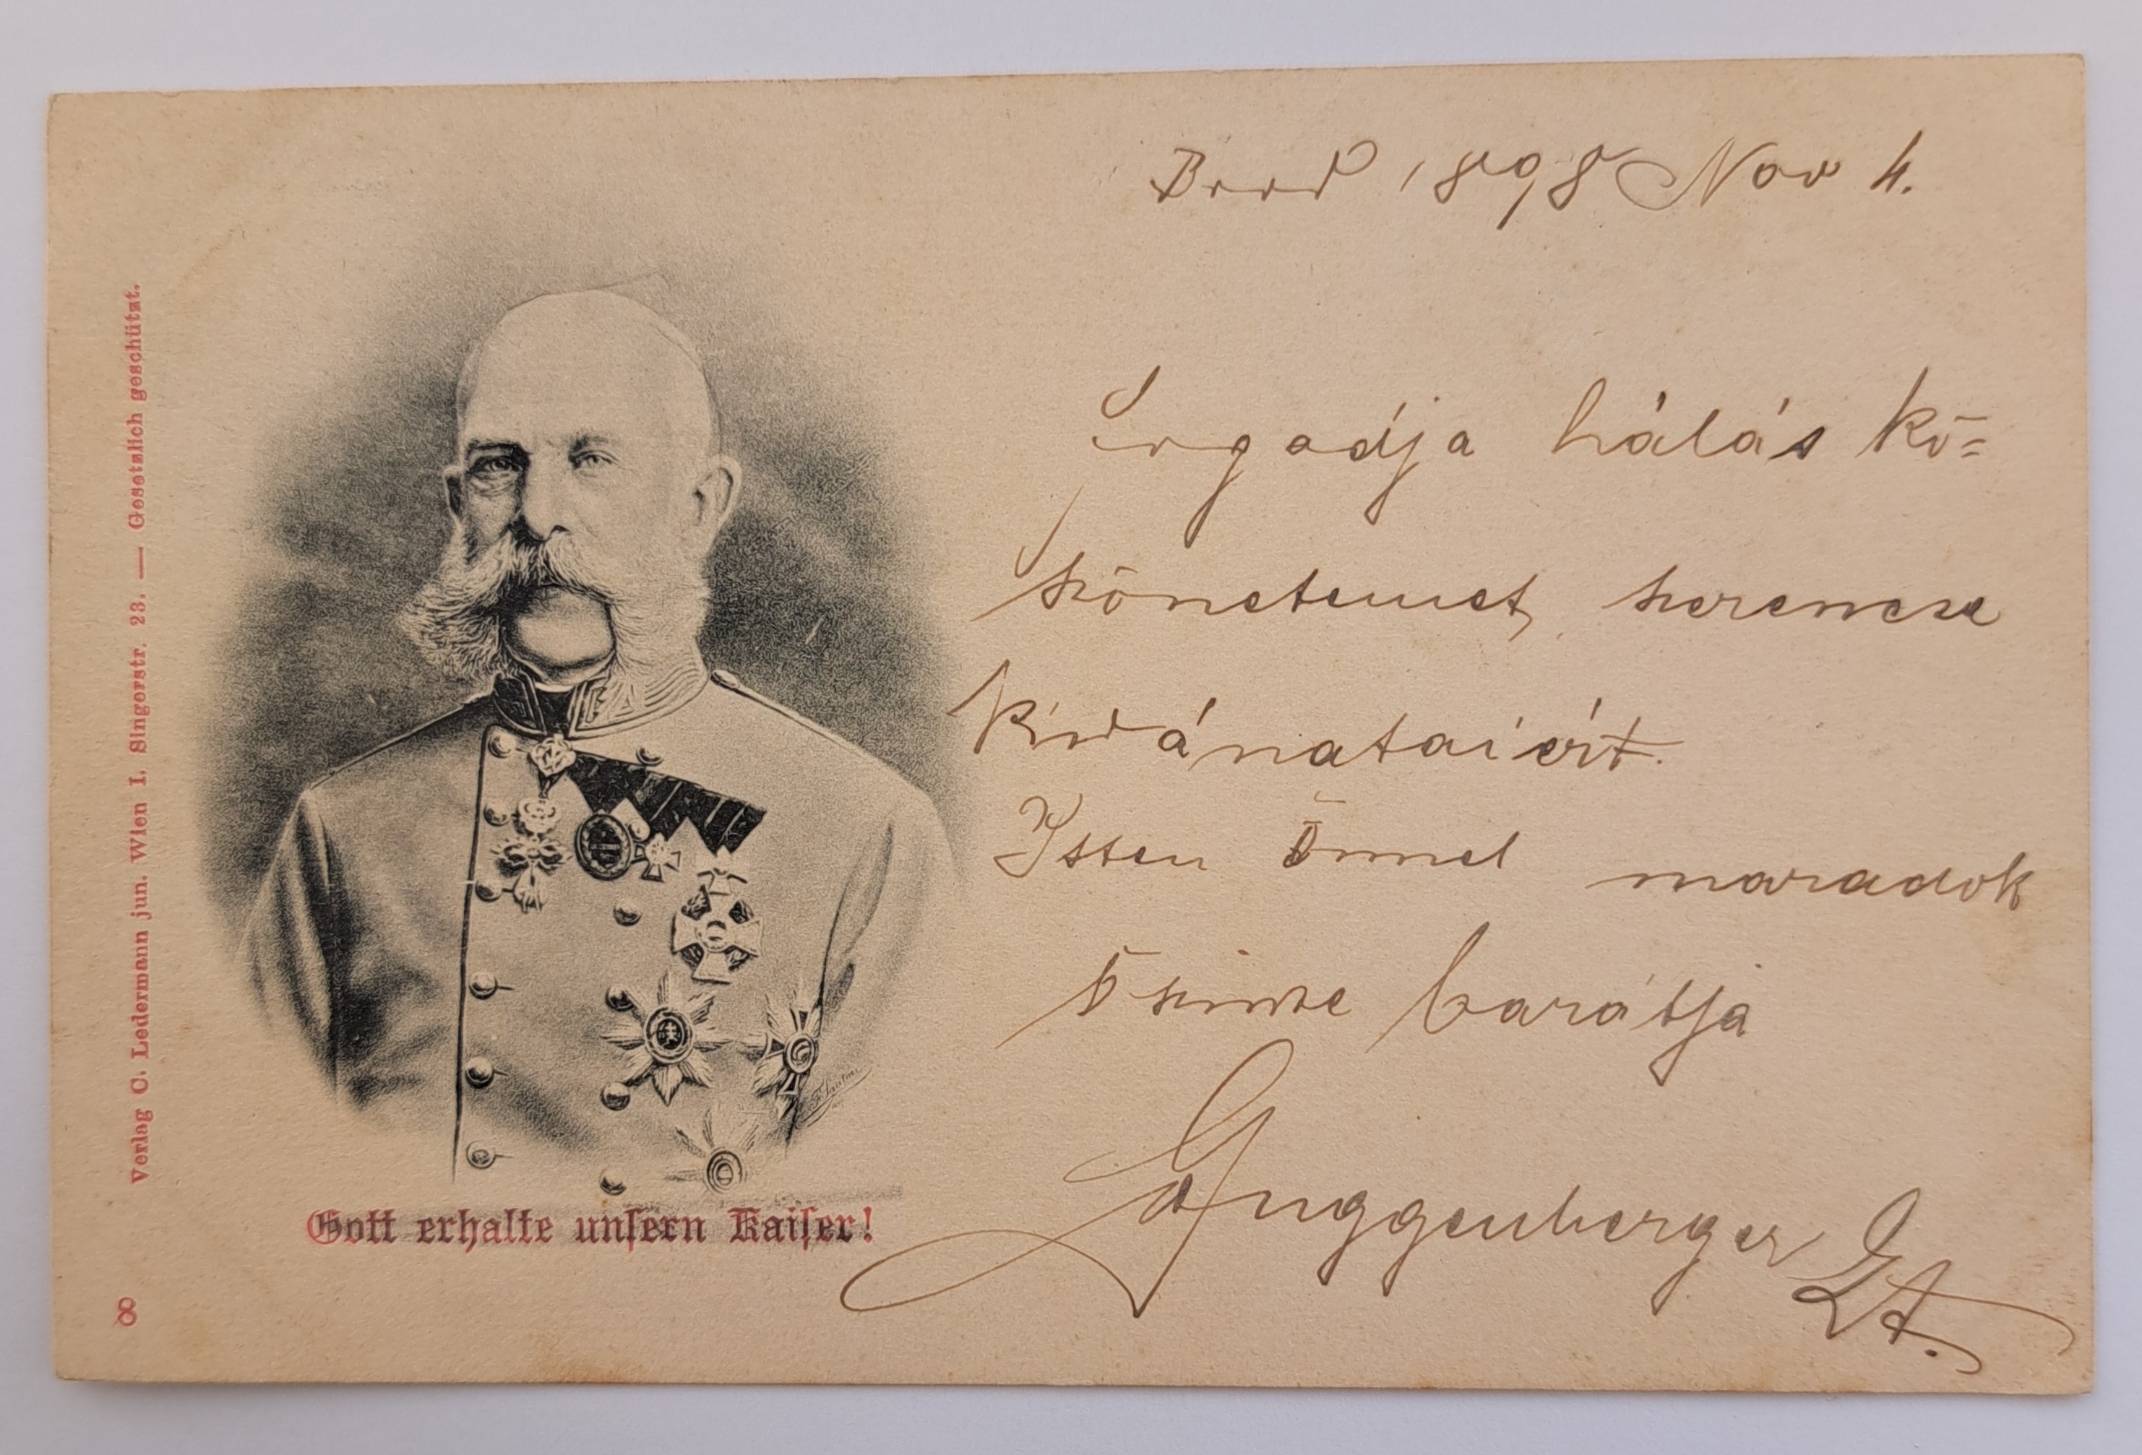 Brod 1898 Nov 4.
Fogadja hálás kö=
szönetemet, szerencse
kivánataiért.
Isten önnel maradok
őszinte barátja
Guggenberger
Gott erhalte unsern Kaiser!
Verlag C. Ledermann jun. Wien I. Singerstr. 23. — Gesetzlich geschützt.
8